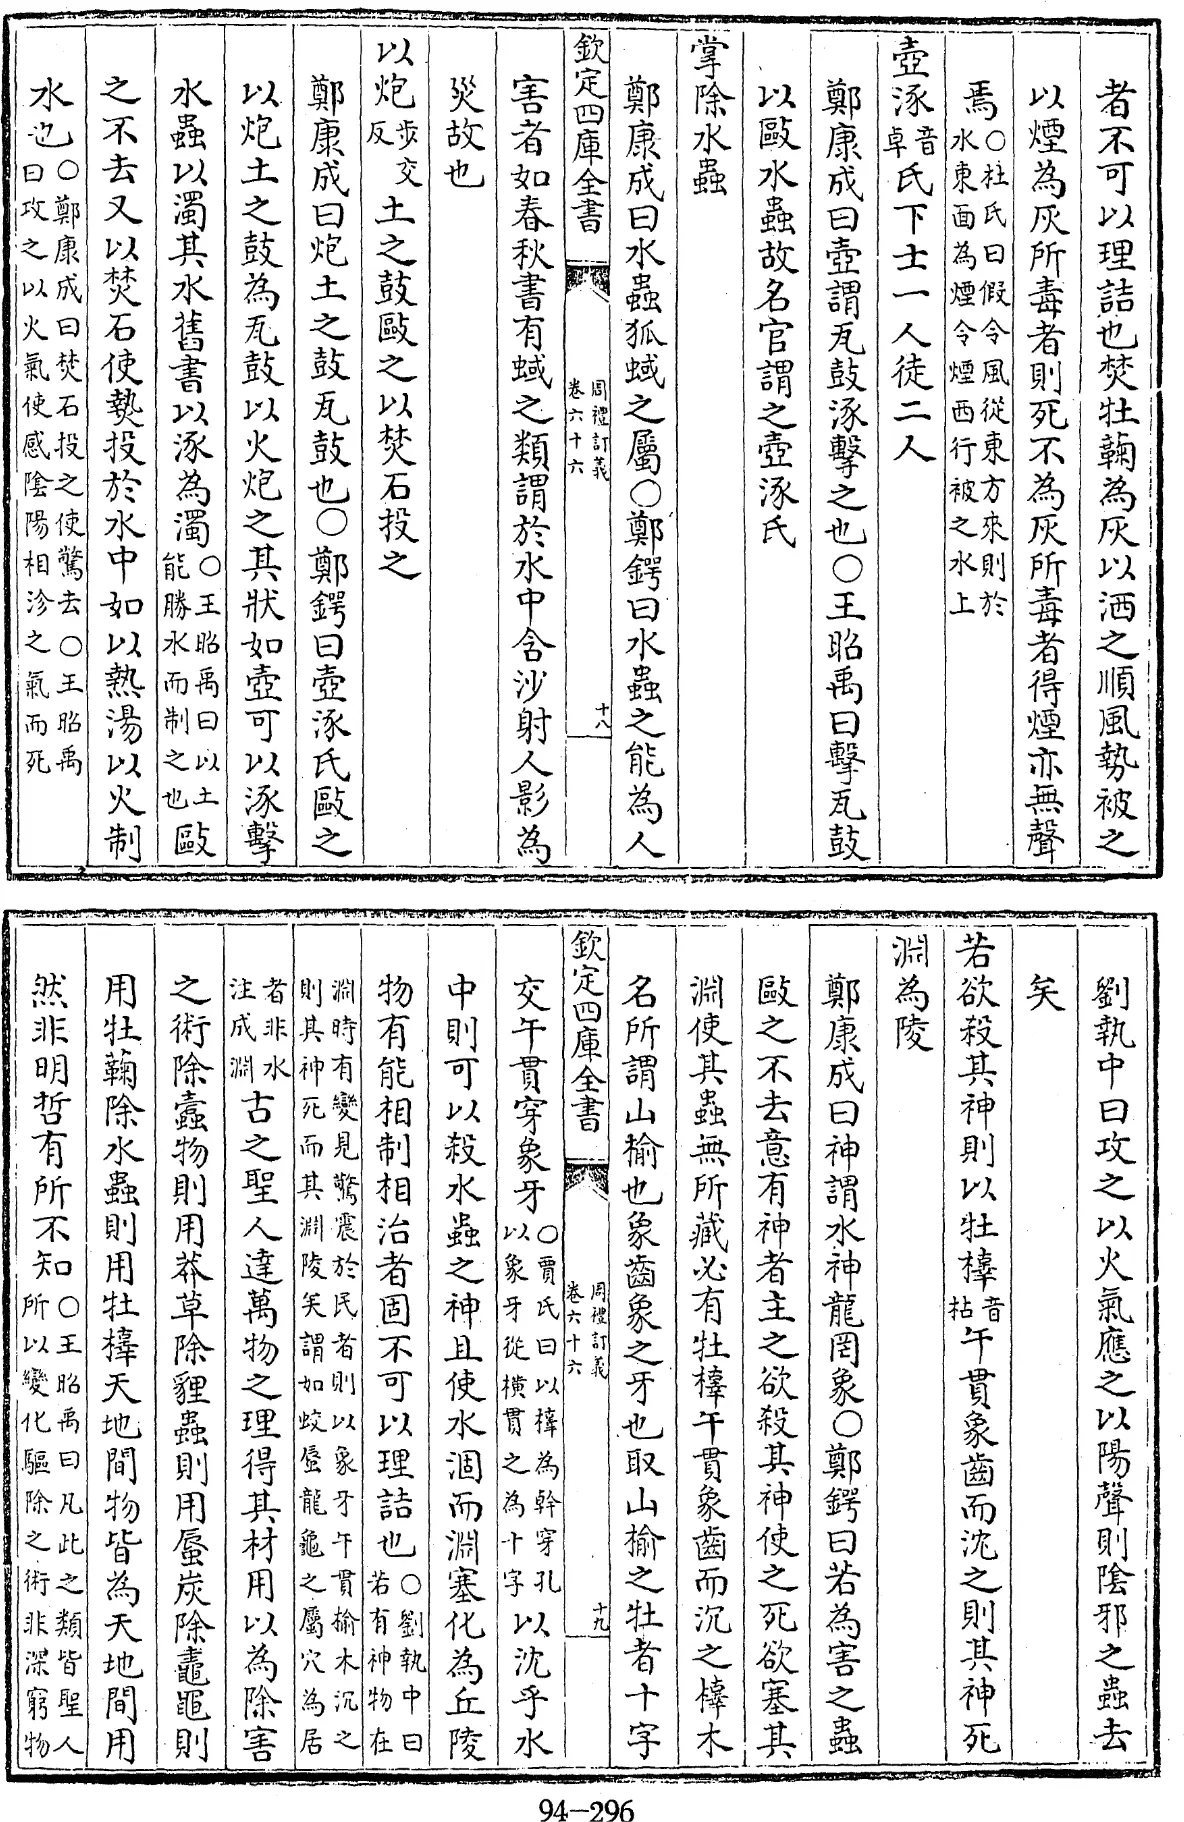 者不可以理詰也焚牡蘜為灰以洒之順風勢被之
以煙為灰所毒者則死不為灰所毒者得煙亦無聲
焉○杜氏曰假令風從東方來則於水東面為煙令煙西行被之水上
壺涿音卓氏下士一人徒二人
鄭康成曰壺謂瓦鼓涿擊之也○王昭禹曰擊瓦鼓
以敺水蟲故名官謂之壺涿氏
掌除水蟲
鄭康成曰水蟲狐蜮之屬○鄭鍔曰水蟲之能為人
欽定四庫全書
周禮訂義
卷六十六
十八
害者如春秋書有蜮之類謂於水中含沙射人影為
災故也
以炮步交反土之鼓敺之以焚石投之
鄭康成曰炮土之鼓瓦鼓也○鄭鍔曰壺涿氏敺之
以炮土之鼓為瓦鼓以火炮之其狀如壺可以涿擊
水蟲以濁其水舊書以涿為濁○王昭禹曰以土能勝水而制之也敺
之不去又以焚石使熱投於水中如以熱湯以火制
水也○鄭康成曰焚石投之使驚去○王昭禹曰攻之以火氣使感陰陽相沴之氣而死
劉執中曰攻之以火氣應之以陽聲則陰邪之蟲去
矣
若欲殺其神則以牡橭音枯午貫象齒而沈之則其神死
淵為陵
鄭康成曰神謂水神龍罔象○鄭鍔曰若為害之蟲
敺之不去意有神者主之欲殺其神使之死欲塞其
淵使其蟲無所藏必有牡橭午貫象齒而沉之橭木
名所謂山榆也象齒象之牙也取山榆之牡者十字
欽定四庫全書
周禮訂義
卷六十六
十九
交午貫穿象牙○賈氏曰以橭為幹穿孔以象牙從橫貫之為十字以沈乎水
中則可以殺水蟲之神且使水涸而淵塞化為丘陵
物有能相制相治者固不可以理詰也○劉執中曰若有神物在
淵時有變見驚震於民者則以象牙午貫榆木沉之則其神死而其淵陵矣謂如蛟蜃龍龜之屬穴為居
者非水注成淵古之聖人達萬物之理得其材用以為除害
之術除蠹物則用莽草除貍蟲則用蜃炭除鼃黽則
用牡蘜除水蟲則用牡橭天地間物皆為天地間用
然非明哲有所不知○王昭禹曰凡此之類皆聖人所以變化驅除之術非深窮物
94-296